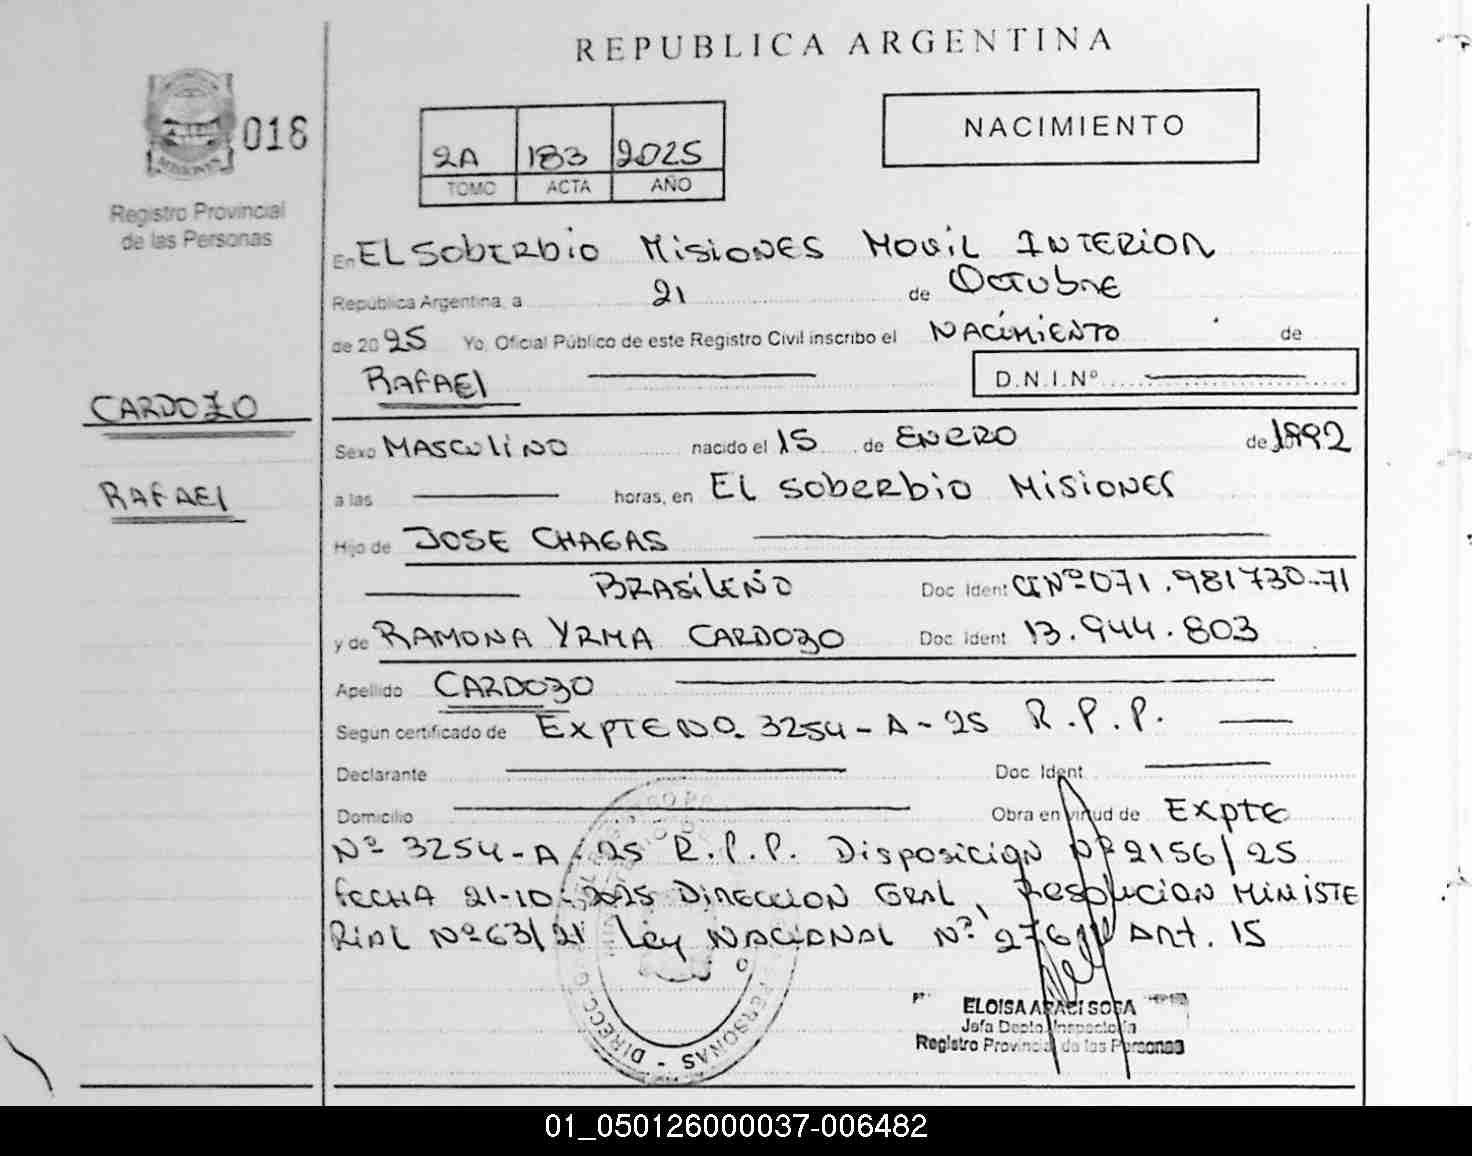 REPUBLICA ARGENTINA
018
NACIMIENTO
2A 183 2025
TOMO ACTA AÑO
Registro Provincial
de las Personas
En EL SobeRbio MisioNES MOVIL INTERIOR
República Argentina, a 21 de Octubre
de 2025 Yo, Oficial Público de este Registro Civil inscribo el NACIMIENTO de
RAFAEl
D.N.I.Nº
CARDOZO
Sexo MASCULINO nacido el 15 de ENERO de 1992
RAFAEl
a las horas, en El SobeRbio MISIONES
Hijo de JOSE CHAGAS
BRASILEÑO Doc. Ident CI Nº 071.981730-71
y de RAMONA YRMA CARDOZO Doc. Ident 13.944.803
Apellido CARDOZO
Según certificado de EXPTE NO. 3254-A-25 R.P.P.
Declarante Doc. Ident
Domicilio Obra en virtud de EXpTE
Nº 3254-A-25 R.P.P. Disposición Nº 2156/25
fECHA 21-10-2025 DIRECCION GRAL, RESOLUCION MINISTE
RIAL Nº 63/21 Ley NACIONAL Nº 27611 ART. 15
PERSONAS - DIRECC
ELOISA ARACI SOSA
Jefa Depto. Inspectoría
Registro Provincial de las Personas
01_050126000037-006482